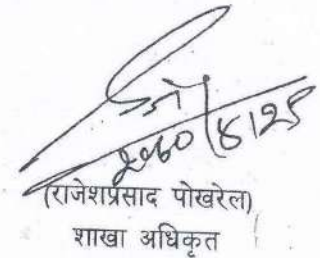 २०८०/४/२५
(राजेशप्रसाद पोखरेल)
शाखा अधिकृत